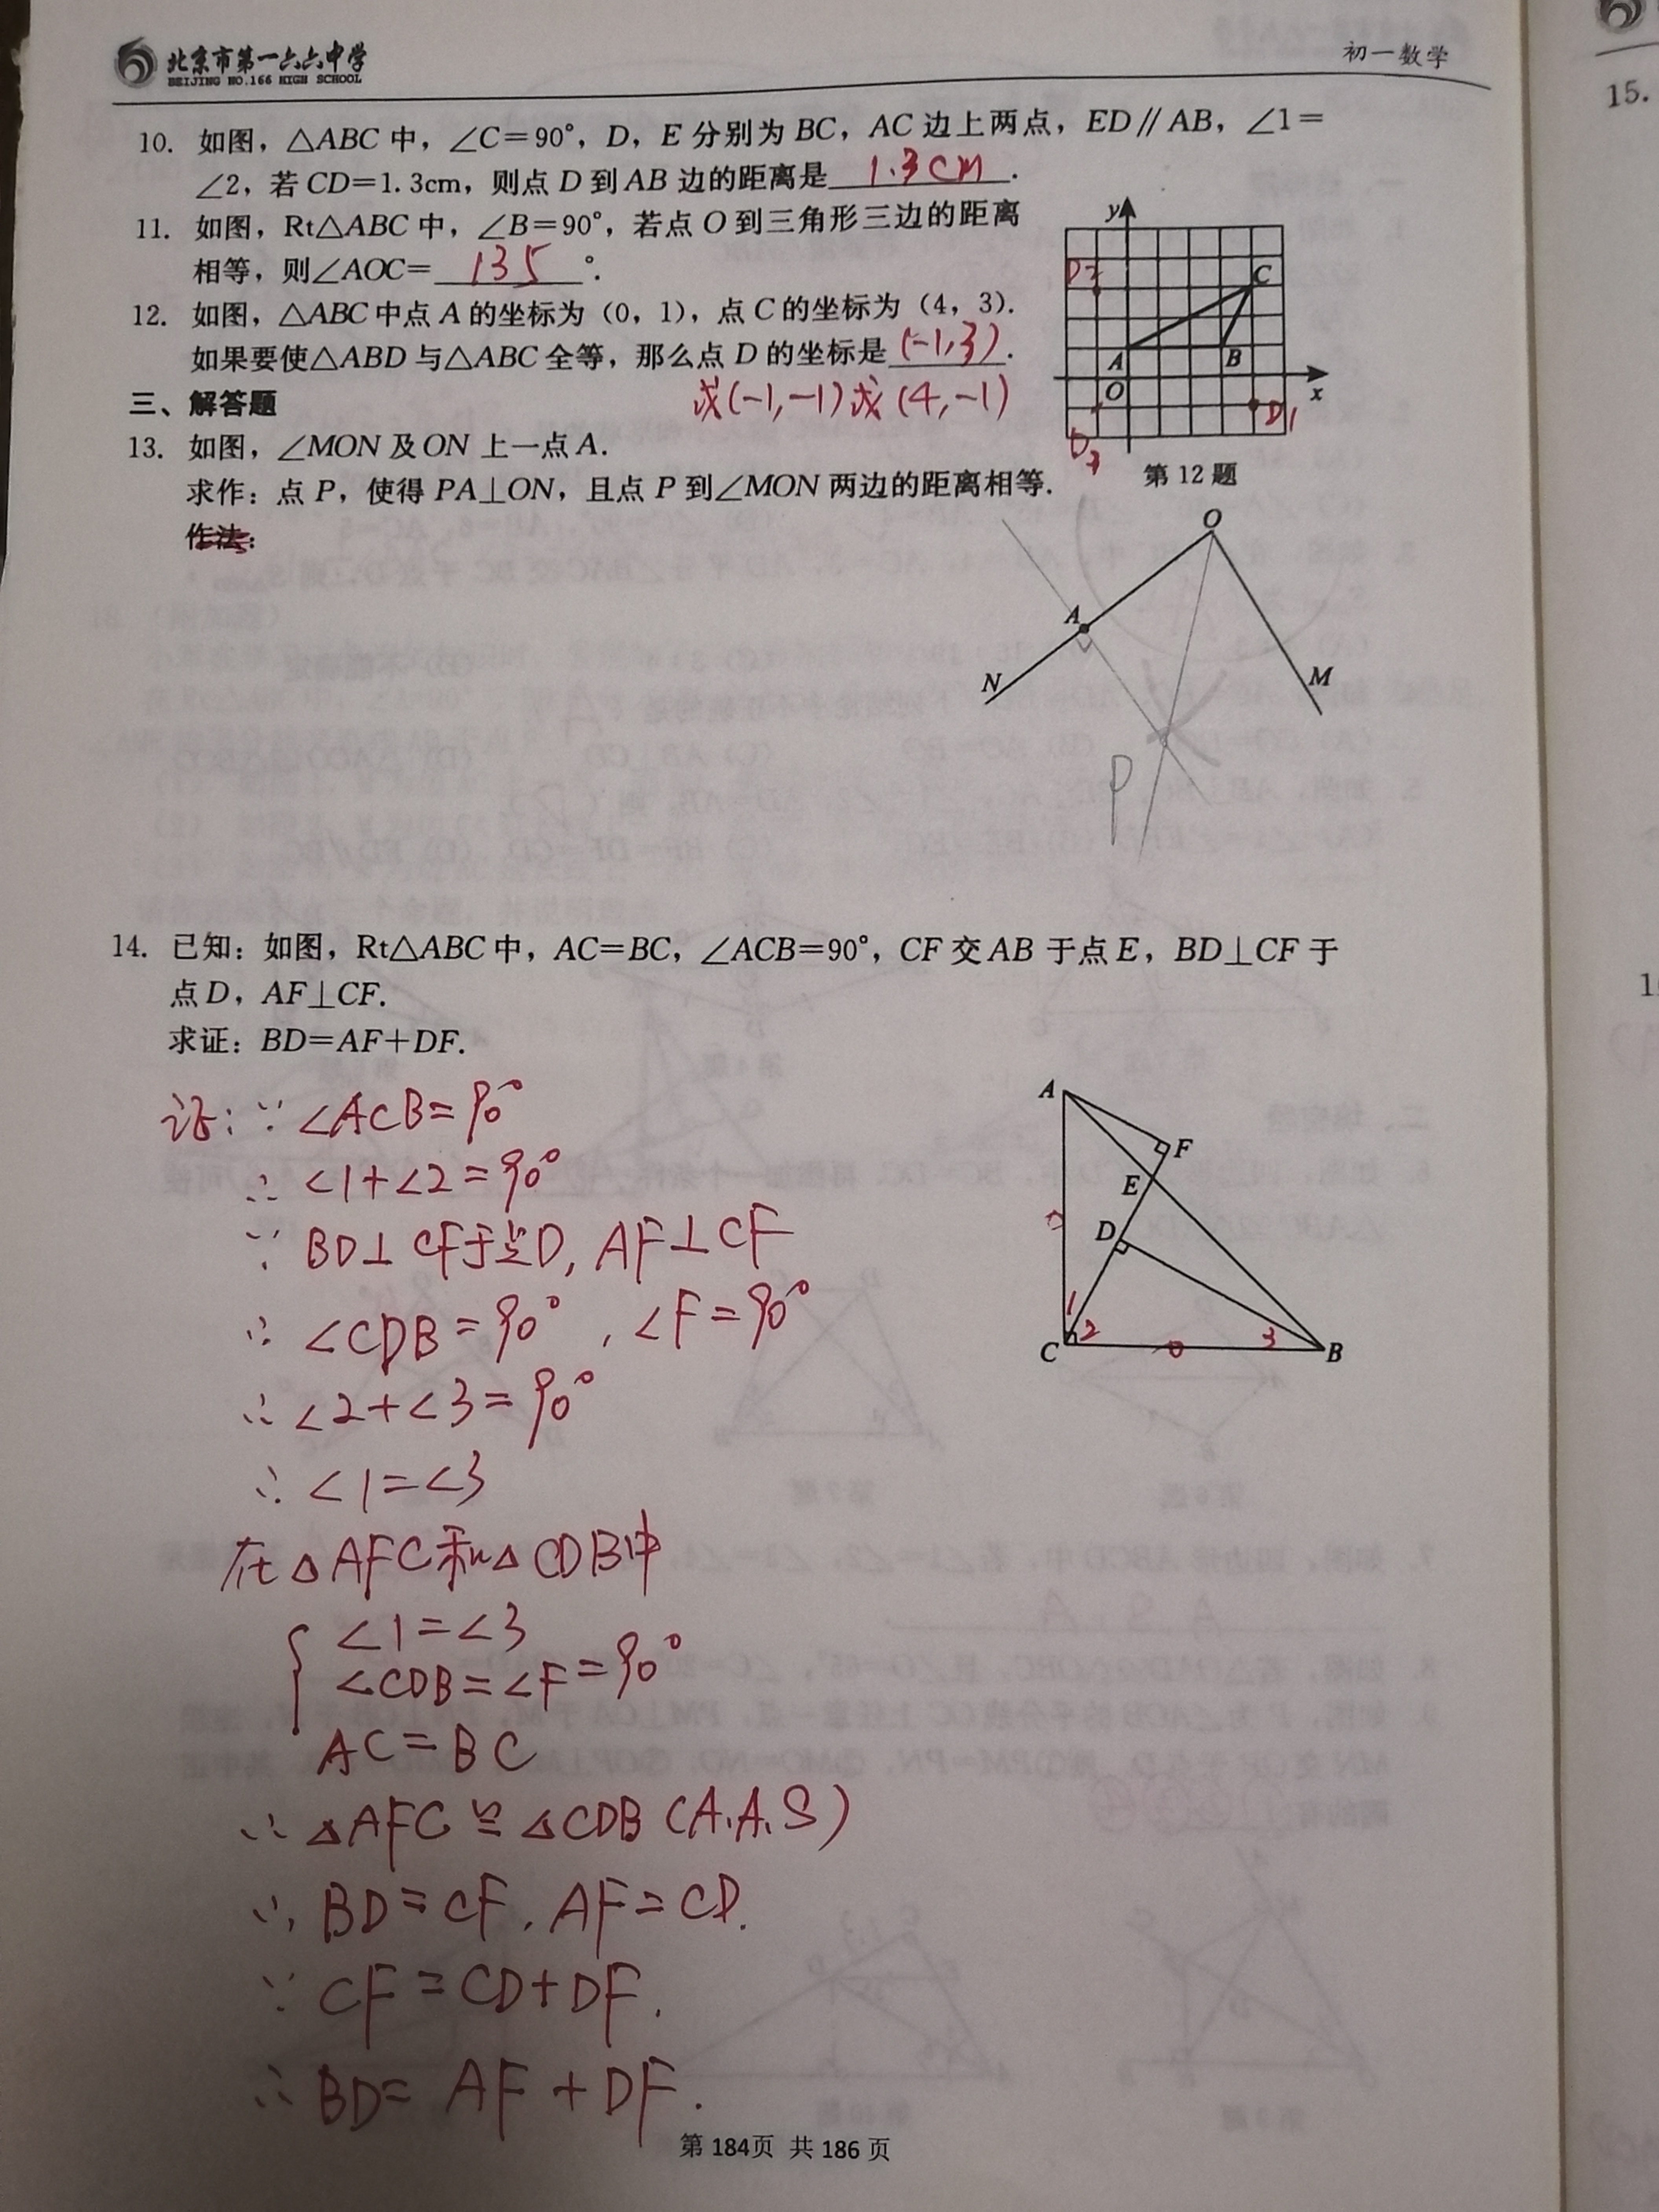 北京市第一六六中学
BEIJING NO.166 HIGH SCHOOL
初一数学
10. 如图，△ABC 中，∠C=90°，D，E 分别为 BC，AC 边上两点，ED∥AB，∠1=
∠2，若 CD=1.3cm，则点 D 到 AB 边的距离是 1.3cm .
11. 如图，Rt△ABC 中，∠B=90°，若点 O 到三角形三边的距离
相等，则∠AOC= 135 °.
12. 如图，△ABC 中点 A 的坐标为（0，1），点 C 的坐标为（4，3）.
如果要使△ABD 与△ABC 全等，那么点 D 的坐标是 (-1,3) .
或(-1,-1)或(4,-1)
y
D2
C
A
B
O
x
D1
D3
第 12 题
三、解答题
13. 如图，∠MON 及 ON 上一点 A.
求作：点 P，使得 PA⊥ON，且点 P 到∠MON 两边的距离相等.
作法：
O
A
N
M
P
14. 已知：如图，Rt△ABC 中，AC=BC，∠ACB=90°，CF 交 AB 于点 E，BD⊥CF 于
点 D，AF⊥CF.
求证：BD=AF+DF.
A
F
E
D
1
C
2
3
B
证：∵ ∠ACB=90°
∴ ∠1+∠2=90°
∵ BD⊥CF于点D, AF⊥CF
∴ ∠CDB=90°, ∠F=90°
∴ ∠2+∠3=90°
∴ ∠1=∠3
在△AFC和△CDB中
∠1=∠3
∠CDB=∠F=90°
AC=BC
∴ △AFC≌△CDB (A.A.S)
∴ BD=CF, AF=CD.
∵ CF=CD+DF.
∴ BD=AF+DF.
第 184页 共 186 页
15.